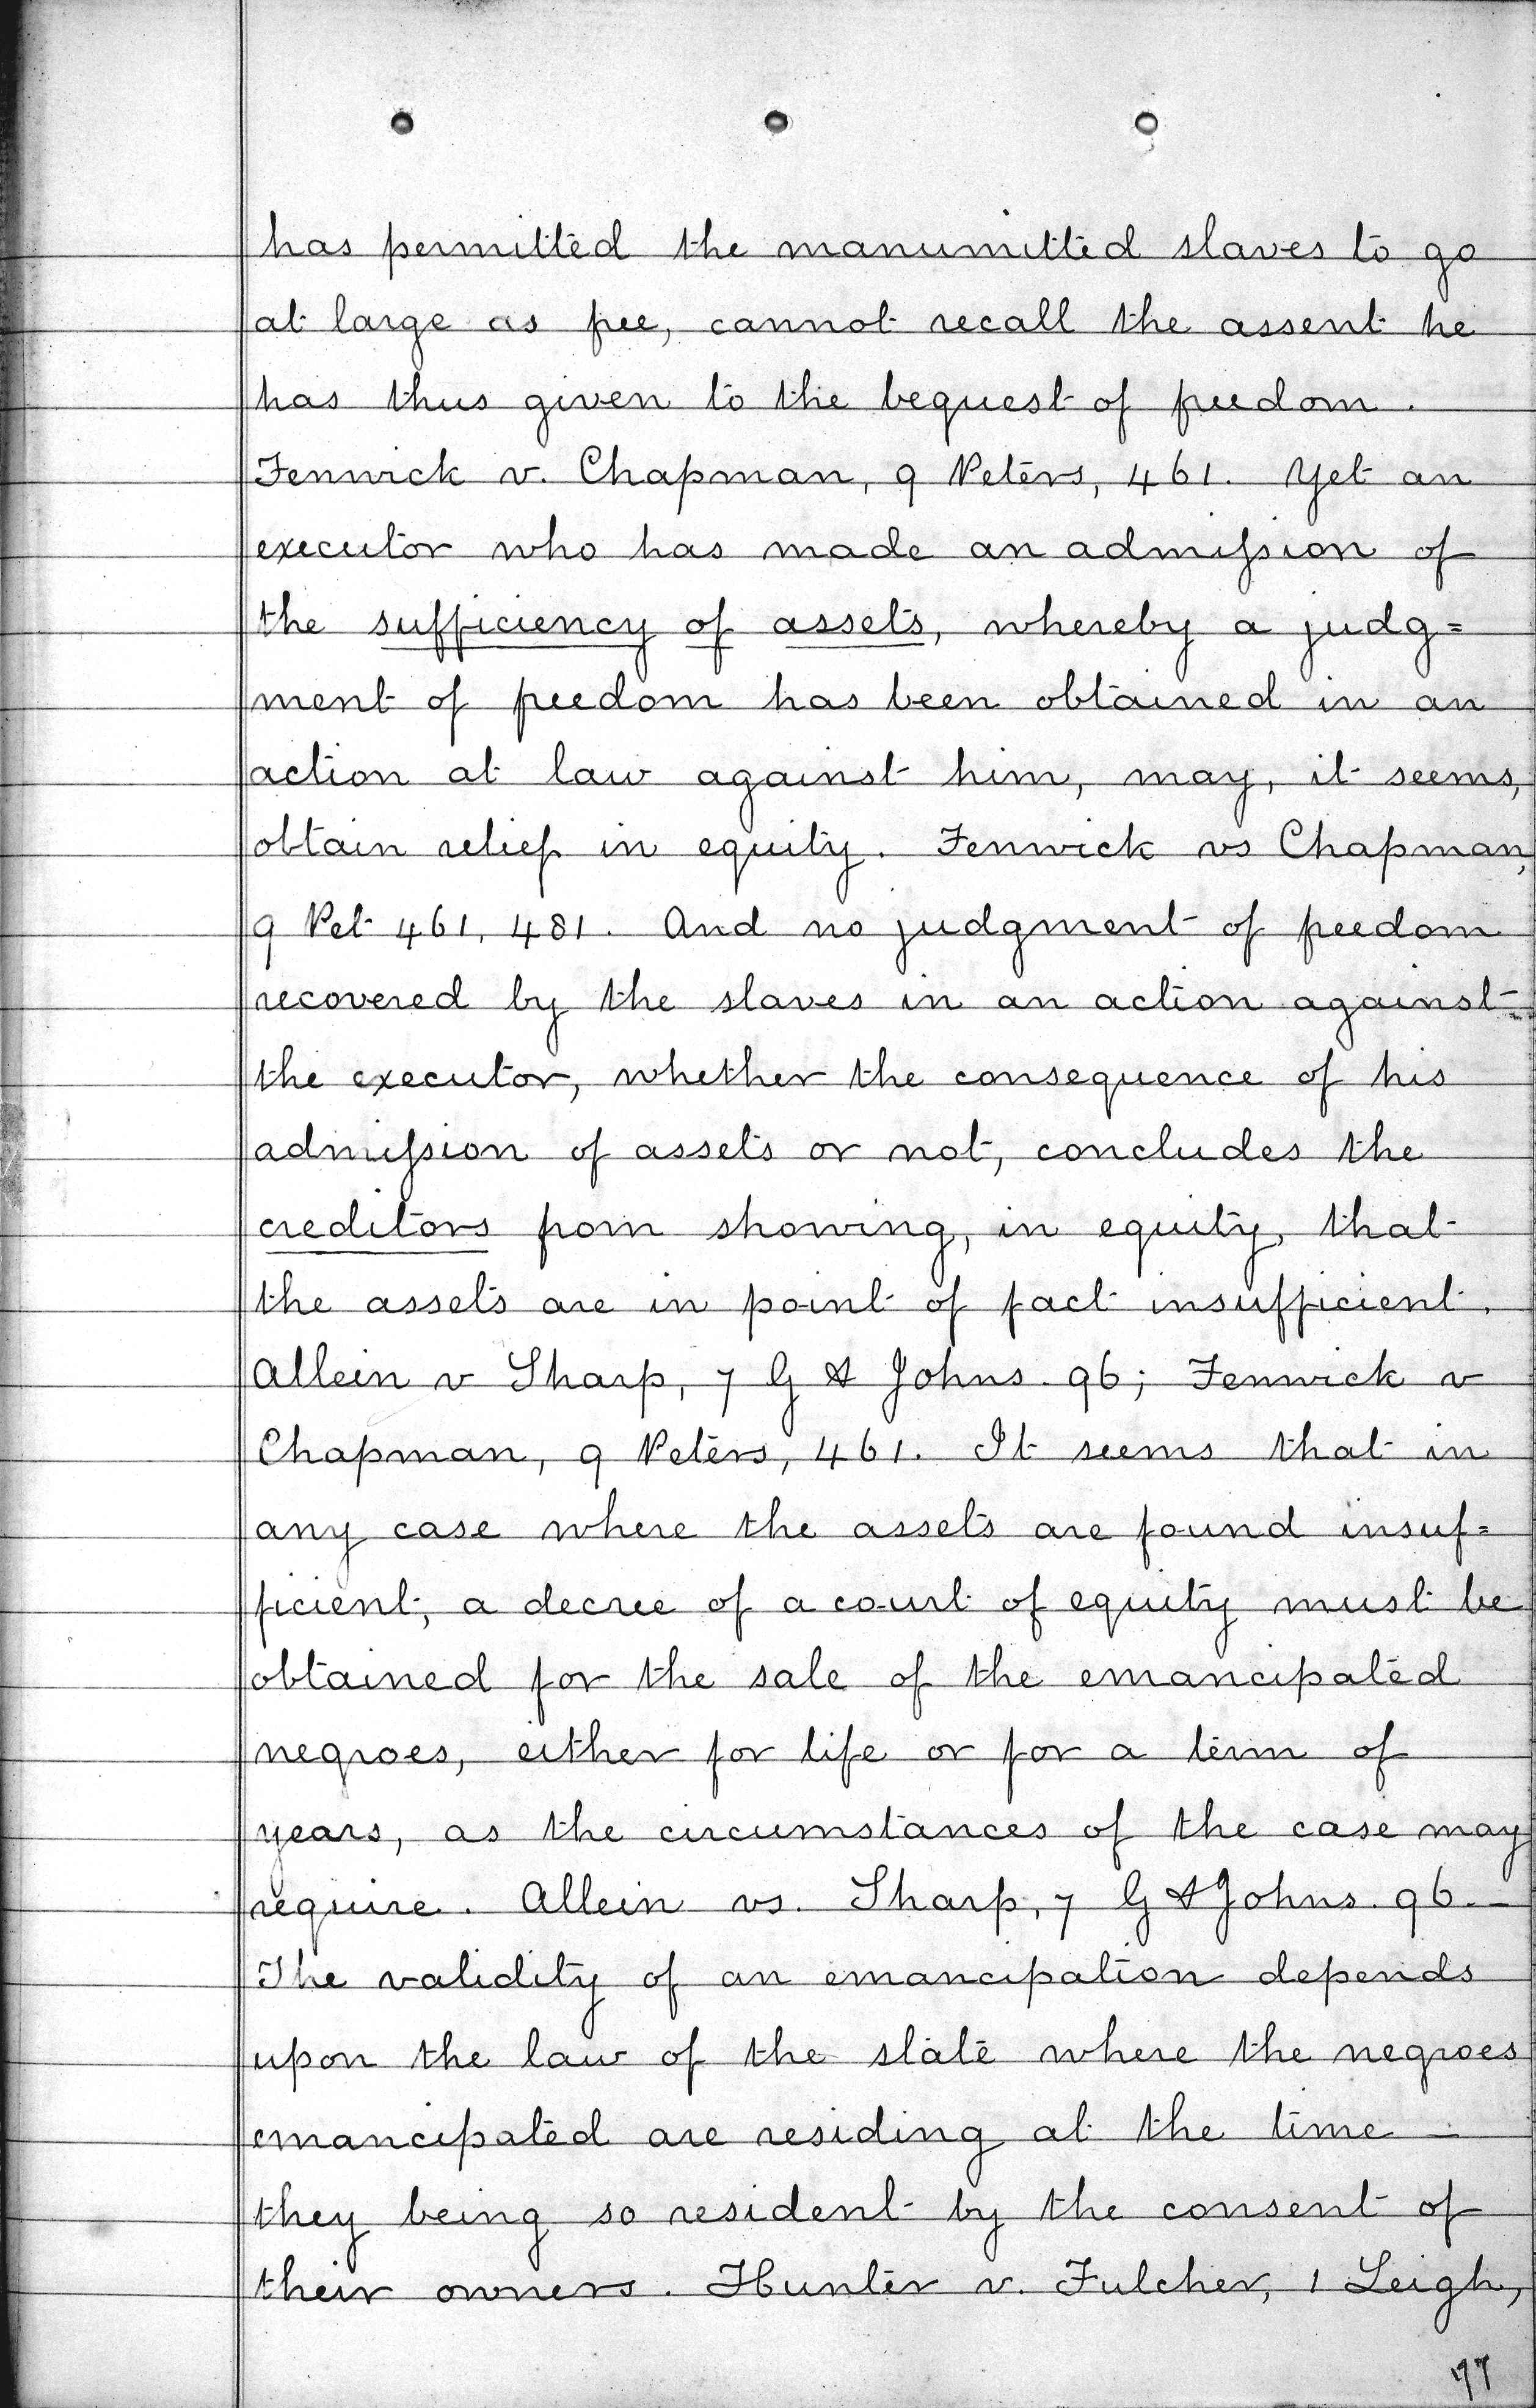 has permitted the manumitted slaves to go
at large as free, cannot recall the assent he
has thus given to the bequest of freedom.
Fenwick v. Chapman, 9 Peters, 461. Yet an
executor who has made an admission of
the sufficiency of assets, whereby a judg=
ment of freedom has been obtained in an
action at law against him, may, it seems,
obtain relief in equity. Fenwick vs Chapman,
9 Pet 461, 481. And no judgment of freedom
recovered by the slaves in an action against
the executor, whether the consequence of his
admission of assets or not, concludes the
creditors from showing, in equity, that
the assets are in point of fact insufficient.
Allein v Sharp, 7 G & Johns. 96; Fenwick v
Chapman, 9 Peters, 461. It seems that in
any case where the assets are found insuf=
ficient, a decree of a court of equity must be
obtained for the sale of the emancipated
negroes, either for life or for a term of
years, as the circumstances of the case may
require. Allein vs. Sharp, 7 G & Johns. 96. —
The validity of an emancipation depends
upon the law of the state where the negroes
emancipated are residing at the time —
they being so resident by the consent of
their owners. Hunter v. Fulcher, 1 Leigh,
77